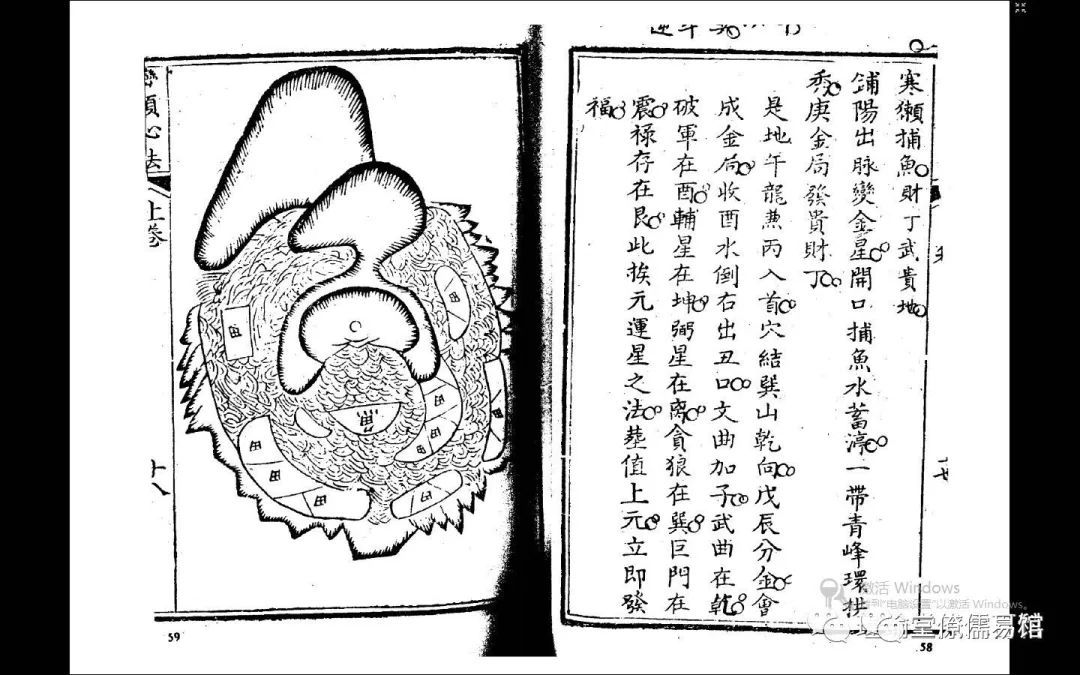 寒獺捕魚財丁武貴地
鋪陽出脉變金星開口捕魚水蓄渟一帶青峰環拱
秀庚金局發貴財丁
是地午龍兼丙入首穴結巽山乾向戊辰分金會
成金局收酉水倒右出丑口文曲加子武曲在乾
破軍在酉輔星在坤弼星在离貪狼在巽巨門在
震禄存在艮此挨元運星之法葬值上元立即發
福
58
心法
上卷
十八
59
魚
田
田
田
田
田
田
田
田
田
激活 Windows
以激活 Windows。
儒易馆